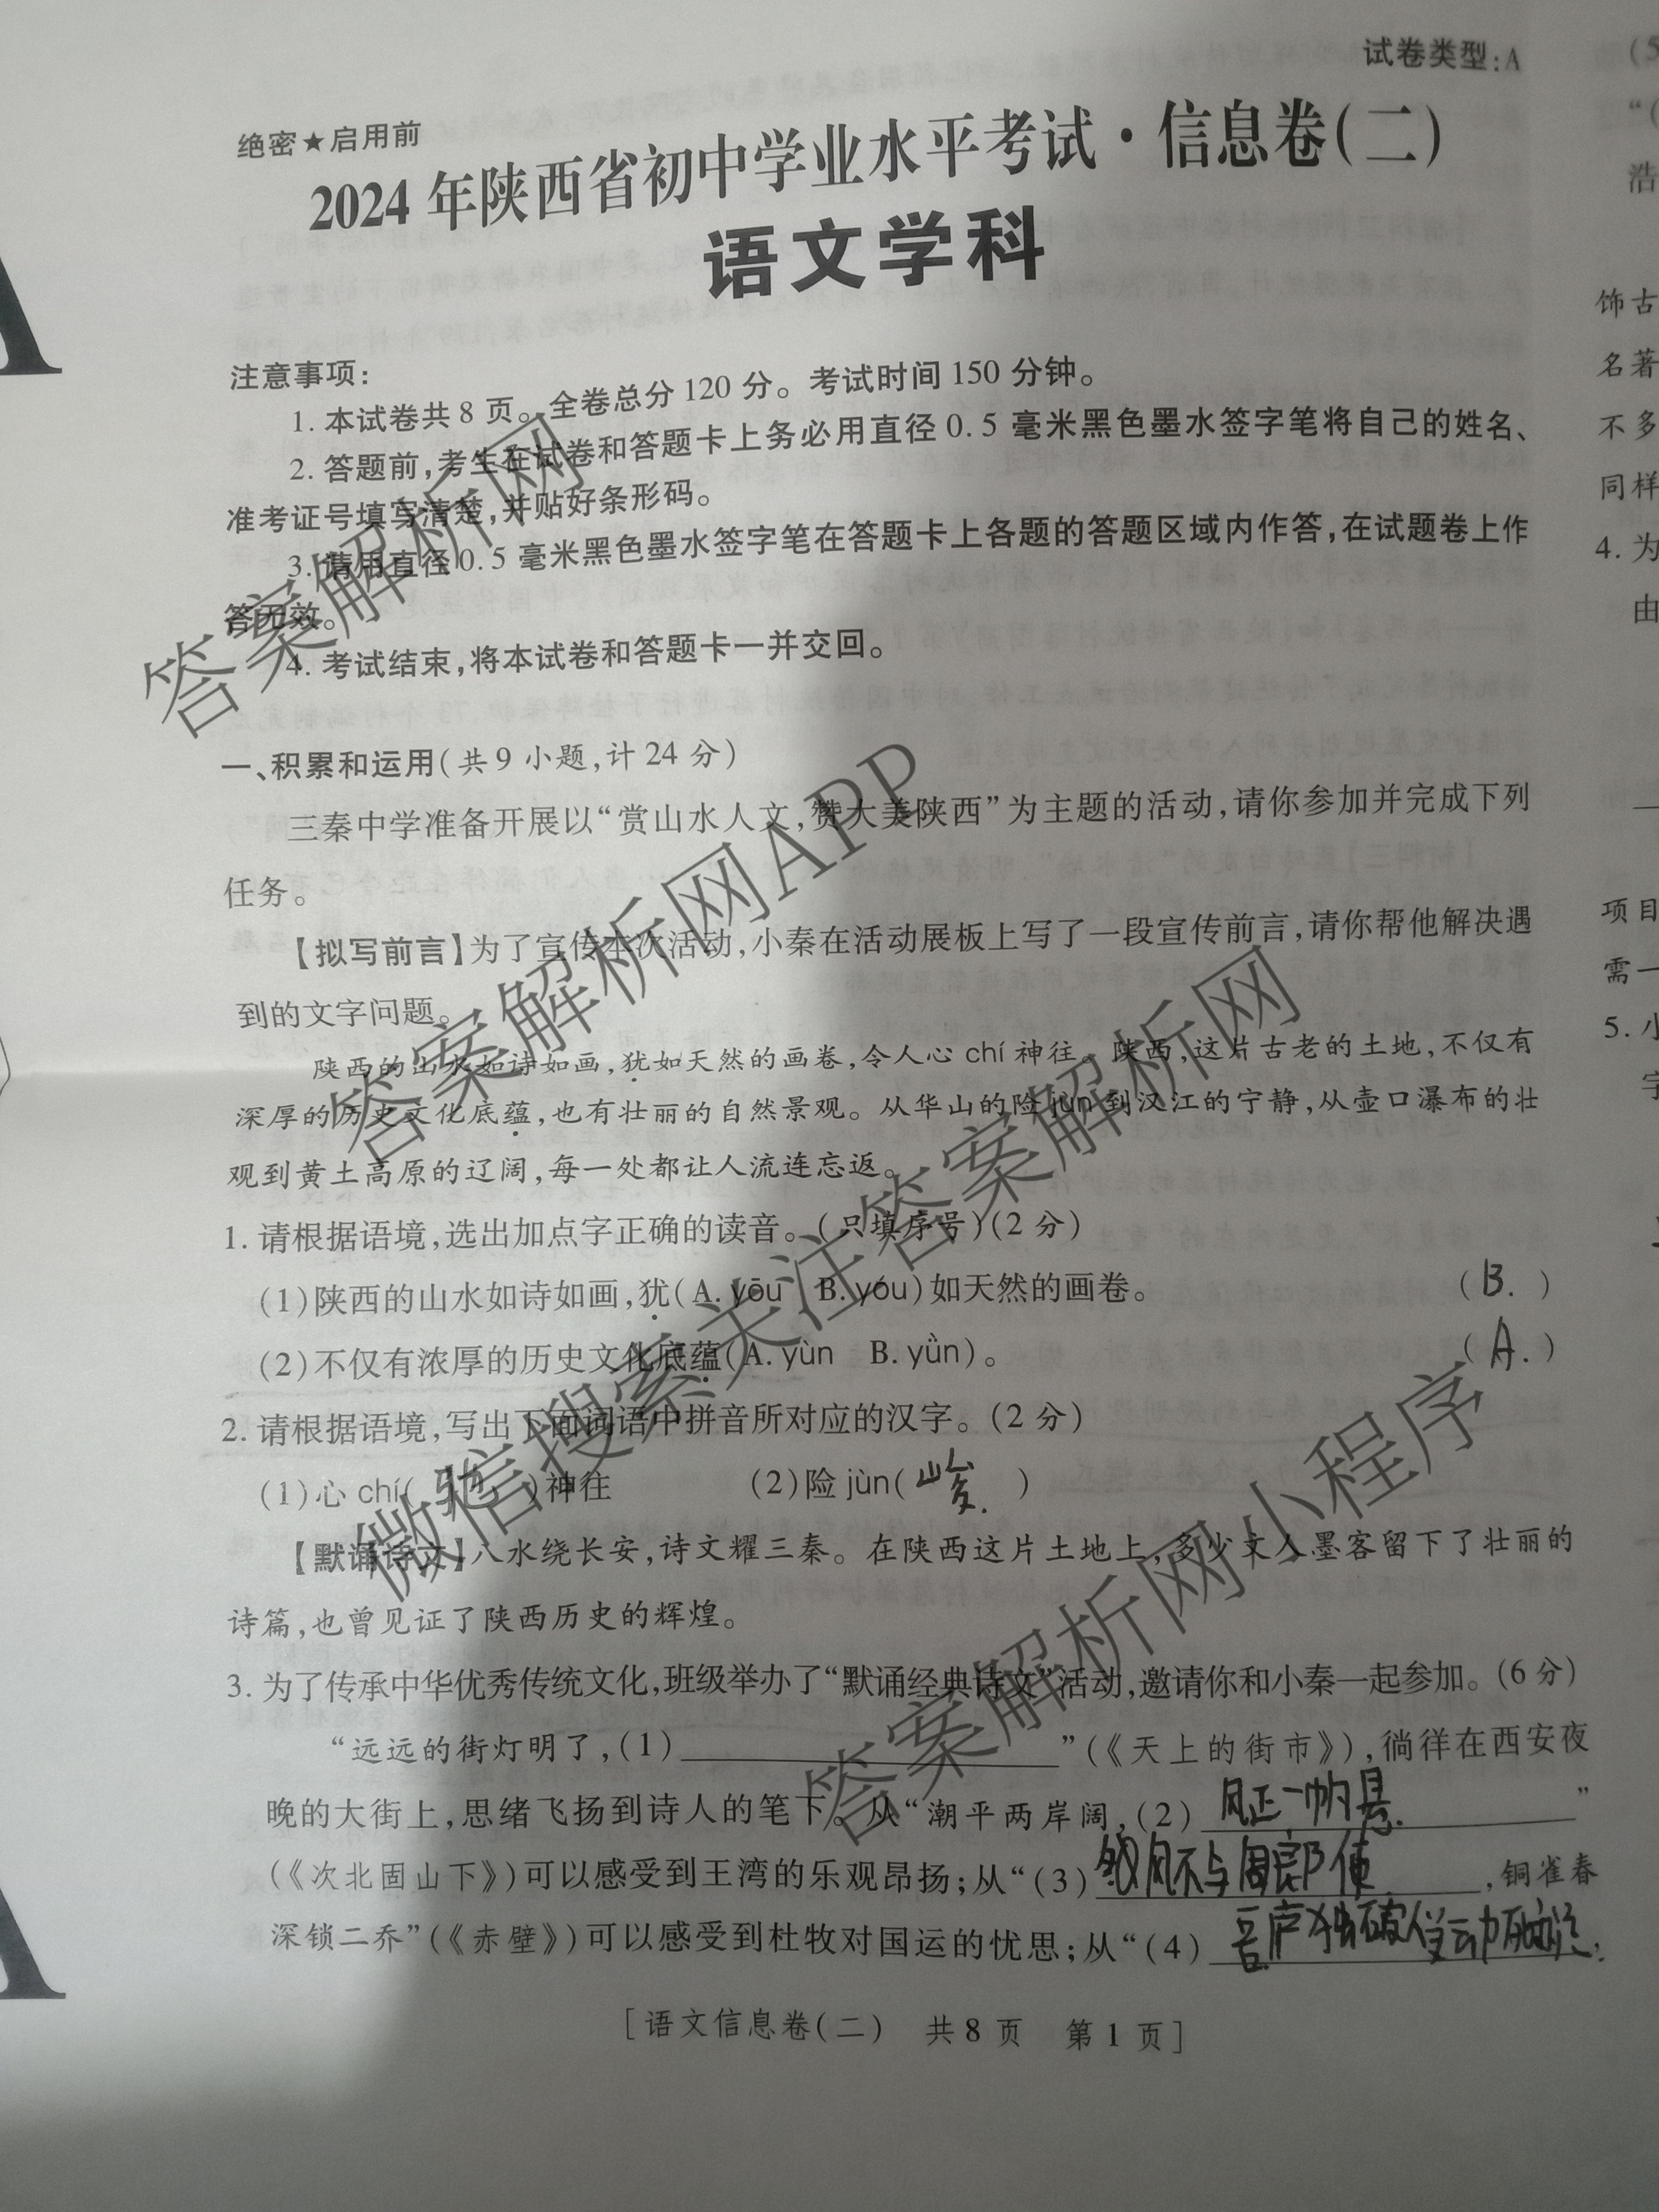 试卷类型:A
绝密★启用前
2024年陕西省初中学业水平考试·信息卷(二)
语文学科
注意事项:
1. 本试卷共8页。全卷总分120分。考试时间150分钟。
2. 答题前,考生在试卷和答题卡上务必用直径0.5毫米黑色墨水签字笔将自己的姓名、
准考证号填写清楚,并贴好条形码。
3. 请用直径0.5毫米黑色墨水签字笔在答题卡上各题的答题区域内作答,在试题卷上作
答无效。
4. 考试结束,将本试卷和答题卡一并交回。
一、积累和运用(共9小题,计24分)
三秦中学准备开展以“赏山水人文,赞大美陕西”为主题的活动,请你参加并完成下列
任务。
【拟写前言】为了宣传本次活动,小秦在活动展板上写了一段宣传前言,请你帮他解决遇
到的文字问题。
陕西的山水如诗如画,犹如天然的画卷,令人心chí神往。陕西,这片古老的土地,不仅有
深厚的历史文化底蕴,也有壮丽的自然景观。从华山的险jùn到汉江的宁静,从壶口瀑布的壮
观到黄土高原的辽阔,每一处都让人流连忘返。
1. 请根据语境,选出加点字正确的读音。(只填序号)(2分)
(1)陕西的山水如诗如画,犹(A. yōu B. yóu)如天然的画卷。 (B. )
(2)不仅有浓厚的历史文化底蕴(A. yùn B. yǜn)。 (A. )
2. 请根据语境,写出下面词语中拼音所对应的汉字。(2分)
(1)心chí( 驰 )神往 (2)险jùn( 峻. )
【默诵诗文】八水绕长安,诗文耀三秦。在陕西这片土地上,多少文人墨客留下了壮丽的
诗篇,也曾见证了陕西历史的辉煌。
3. 为了传承中华优秀传统文化,班级举办了“默诵经典诗文”活动,邀请你和小秦一起参加。(6分)
“远远的街灯明了,(1)”(《天上的街市》),徜徉在西安夜
晚的大街上,思绪飞扬到诗人的笔下。从“潮平两岸阔,(2)风正一帆悬.”
(《次北固山下》)可以感受到王湾的乐观昂扬;从“(3)东风不与周郎便,铜雀春
深锁二乔”(《赤壁》)可以感受到杜牧对国运的忧思;从“(4)吾庐独破受冻死亦足,
[语文信息卷(二) 共8页 第1页]
(5
“(
浩
饰古
名著
不多
同样
4. 为
由
项目
需一
5. 小
字
答案解析网
答案解析网APP
微信搜索关注答案解析网
答案解析网小程序